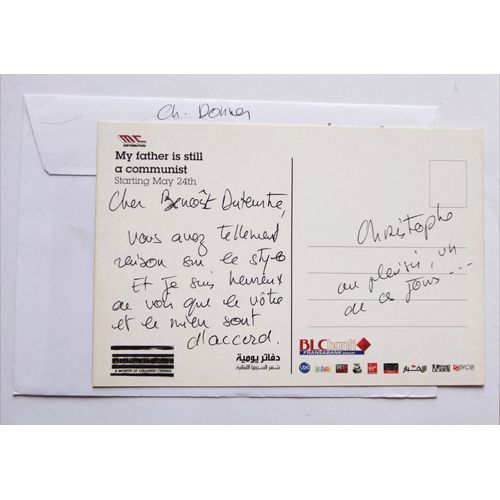 Ch. Donner
MC
DISTRIBUTION
My father is still
a communist
Starting May 24th
Cher Benoît Duteurtre,
Vous avez tellement
raison sur le style
Et je suis heureux
de voir que le vôtre
et le mien sont
d'accord.
Christophe
au plaisir, un
de ces jours ---
BLC bank
FRANSABANK GROUP
دفاتر يومية
شهر السينما اللبنانية
A MONTH OF LEBANESE CINEMA
lbc
Virgin
الأخبار